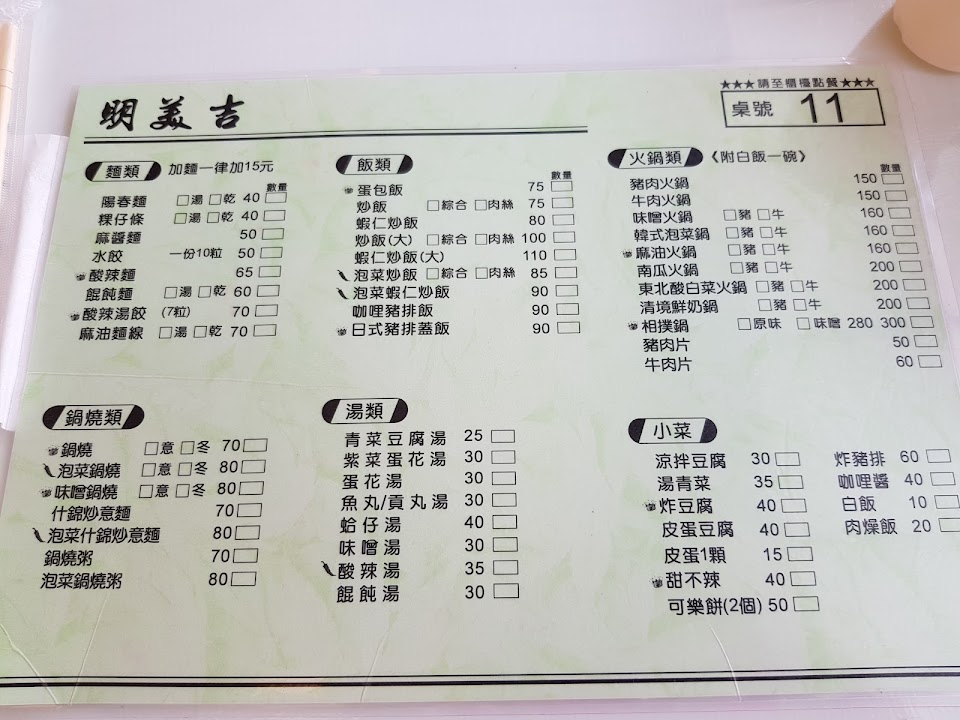 明美吉
★★★請至櫃檯點餐★★★
桌號 11
麵類 加麵一律加15元
數量
陽春麵 □湯 □乾 40 □
粿仔條 □湯 □乾 40 □
麻醬麵 50 □
水餃 一份10粒 50 □
酸辣麵 65 □
餛飩麵 □湯 □乾 60 □
酸辣湯餃 (7粒) 70 □
麻油麵線 □湯 □乾 70 □
飯類
數量
蛋包飯 75 □
炒飯 □綜合 □肉絲 75 □
蝦仁炒飯 80 □
炒飯(大) □綜合 □肉絲 100 □
蝦仁炒飯(大) 110 □
泡菜炒飯 □綜合 □肉絲 85 □
泡菜蝦仁炒飯 90 □
咖哩豬排飯 90 □
日式豬排蓋飯 90 □
火鍋類 《附白飯一碗》
數量
豬肉火鍋 150 □
牛肉火鍋 150 □
味噌火鍋 □豬 □牛 160 □
韓式泡菜鍋 □豬 □牛 160 □
麻油火鍋 □豬 □牛 160 □
南瓜火鍋 □豬 □牛 200 □
東北酸白菜火鍋 □豬 □牛 200 □
清境鮮奶鍋 □豬 □牛 200 □
相撲鍋 □原味 □味噌 280 300 □
豬肉片 50 □
牛肉片 60 □
鍋燒類
鍋燒 □意 □冬 70 □
泡菜鍋燒 □意 □冬 80 □
味噌鍋燒 □意 □冬 80 □
什錦炒意麵 70 □
泡菜什錦炒意麵 80 □
鍋燒粥 70 □
泡菜鍋燒粥 80 □
湯類
青菜豆腐湯 25 □
紫菜蛋花湯 30 □
蛋花湯 30 □
魚丸/貢丸湯 30 □
蛤仔湯 40 □
味噌湯 30 □
酸辣湯 35 □
餛飩湯 30 □
小菜
涼拌豆腐 30 □
湯青菜 35 □
炸豆腐 40 □
皮蛋豆腐 40 □
皮蛋1顆 15 □
甜不辣 40 □
可樂餅(2個) 50 □
炸豬排 60 □
咖哩醬 40 □
白飯 10 □
肉燥飯 20 □